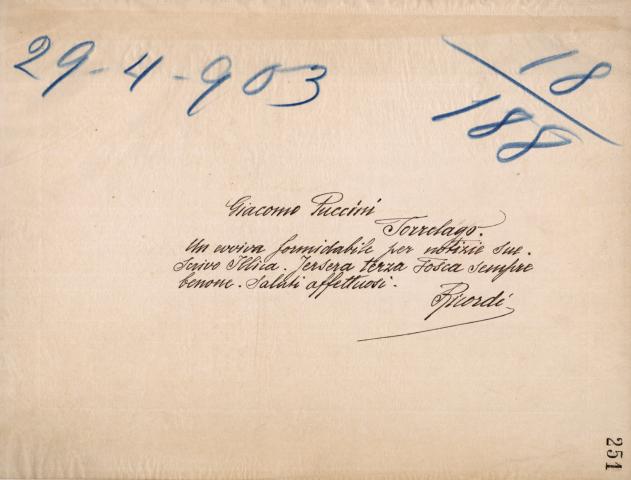 29-4-903
18
188
Giacomo Puccini
Torrelago.
Un evviva formidabile per notizie sue.
Scrivo Illica. Jersera terza Tosca sempre
benone. Saluti affettuosi.
Ricordi
251